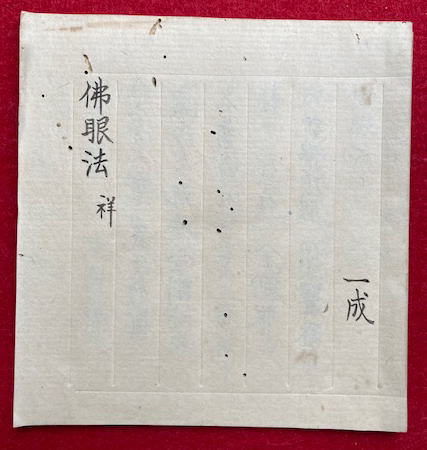 佛眼法 祥
一成